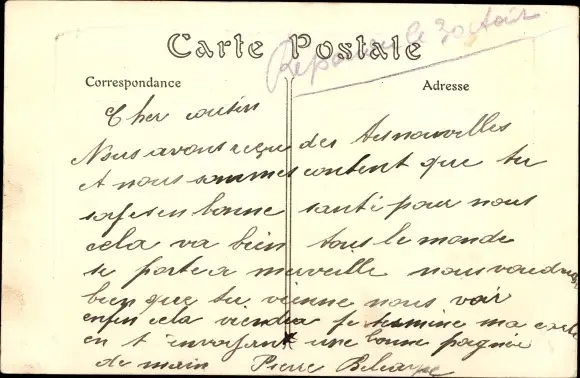 Carte Postale
Répondu le 30 Août
Correspondance
Adresse
Cher cousin
Nous avons reçu des tes nouvelles
et nous sommes content que tu
sois en bonne santé pour nous
cela va bien tous le monde
se porte a merveille nous voudrions
bien que tu vienne nous voir
enfin cela viendra je termine ma carte
en t'envoyant une bonne poignée
de main Pierre